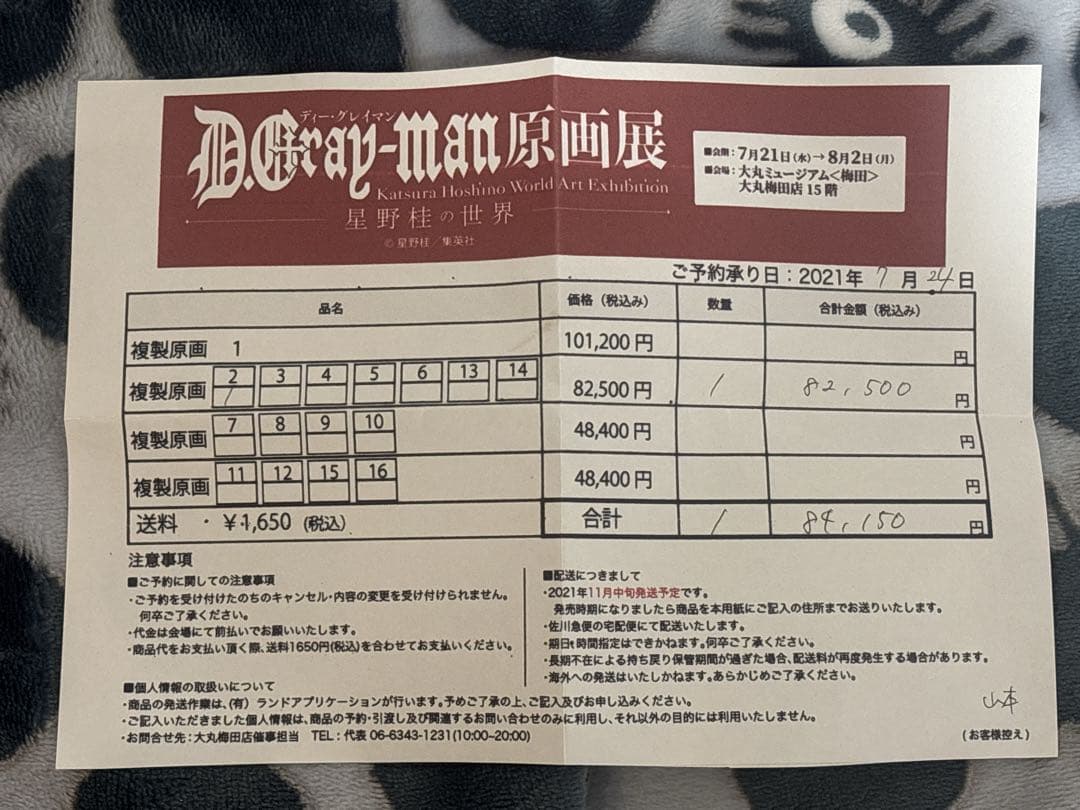 ディー・グレイマン
D.Gray-man 原画展
Katsura Hoshino World Art Exhibition
星野桂の世界
©星野桂/集英社
■会期:7月21日(水)→8月2日(月)
■会場:大丸ミュージアム<梅田>
大丸梅田店15階
ご予約承り日:2021年 7月24日
品名 価格(税込み) 数量 合計金額(税込み)
複製原画 1 101,200円 円
複製原画 2 3 4 5 6 13 14 82,500円 1 82,500 円
1
複製原画 7 8 9 10 48,400円 円
複製原画 11 12 15 16 48,400円 円
送料 ・ ¥1,650 (税込) 合計 1 84,150 円
注意事項
■ご予約に関しての注意事項
・ご予約を受け付けたのちのキャンセル・内容の変更を受け付けられません。
何卒ご了承ください。
・代金は会場にて前払いでお願いいたします。
・商品代をお支払い頂く際、送料1650円(税込)を合わせてお支払いください。
■配送につきまして
・2021年11月中旬発送予定です。
発売時期になりましたら商品を本用紙にご記入の住所までお送りいたします。
・佐川急便の宅配便にて配送いたします。
・期日・時間指定はできかねます。何卒ご了承ください。
・長期不在による持ち戻り保管期間が過ぎた場合、配送料が再度発生する場合があります。
・海外への発送はいたしかねます。あらかじめご了承ください。
■個人情報の取扱いについて
・商品の発送作業は、(有)ランドアプリケーションが行います。予めご了承の上、ご記入及びお申し込みください。
・ご記入いただきました個人情報は、商品の予約・引渡し及び関連するお問い合わせのみに利用し、それ以外の目的には利用いたしません。
・お問合せ先:大丸梅田店催事担当 TEL:代表 06-6343-1231(10:00~20:00)
山本
(お客様控え)